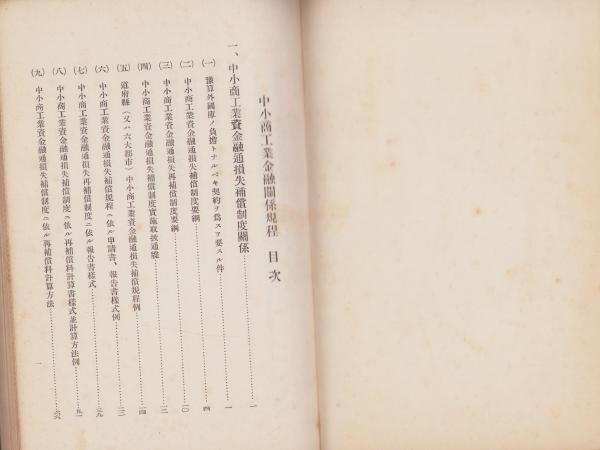 中小商工業金融關係規程 目次
一、中小商工業資金融通損失補償制度關係……一
(一) 豫算外國庫ノ負擔トナルベキ契約ヲ爲スヲ要スル件……一
(二) 中小商工業資金融通損失補償制度要綱……四
(三) 中小商工業資金融通損失再補償制度要綱……一〇
(四) 中小商工業資金融通損失補償制度實施取扱通牒……一三
(五) 道府縣(又ハ六大都市)中小商工業資金融通損失補償規程例……一四
(六) 中小商工業資金融通損失補償規程ニ依ル申請書、報告書樣式例……二二
(七) 中小商工業資金融通損失再補償制度ニ依ル報告書樣式……
(八) 中小商工業資金融通損失補償制度ニ依ル再補償料計算書樣式並計算方法例……
(九) 中小商工業資金融通損失補償制度ニ依ル再補償料計算方法……
一